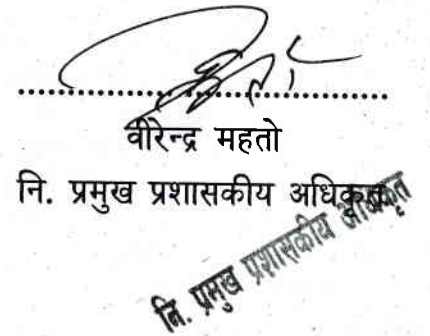 वीरेन्द्र महतो
नि. प्रमुख प्रशासकीय अधिकृत
नि. प्रमुख प्रशासकीय अधिकृत